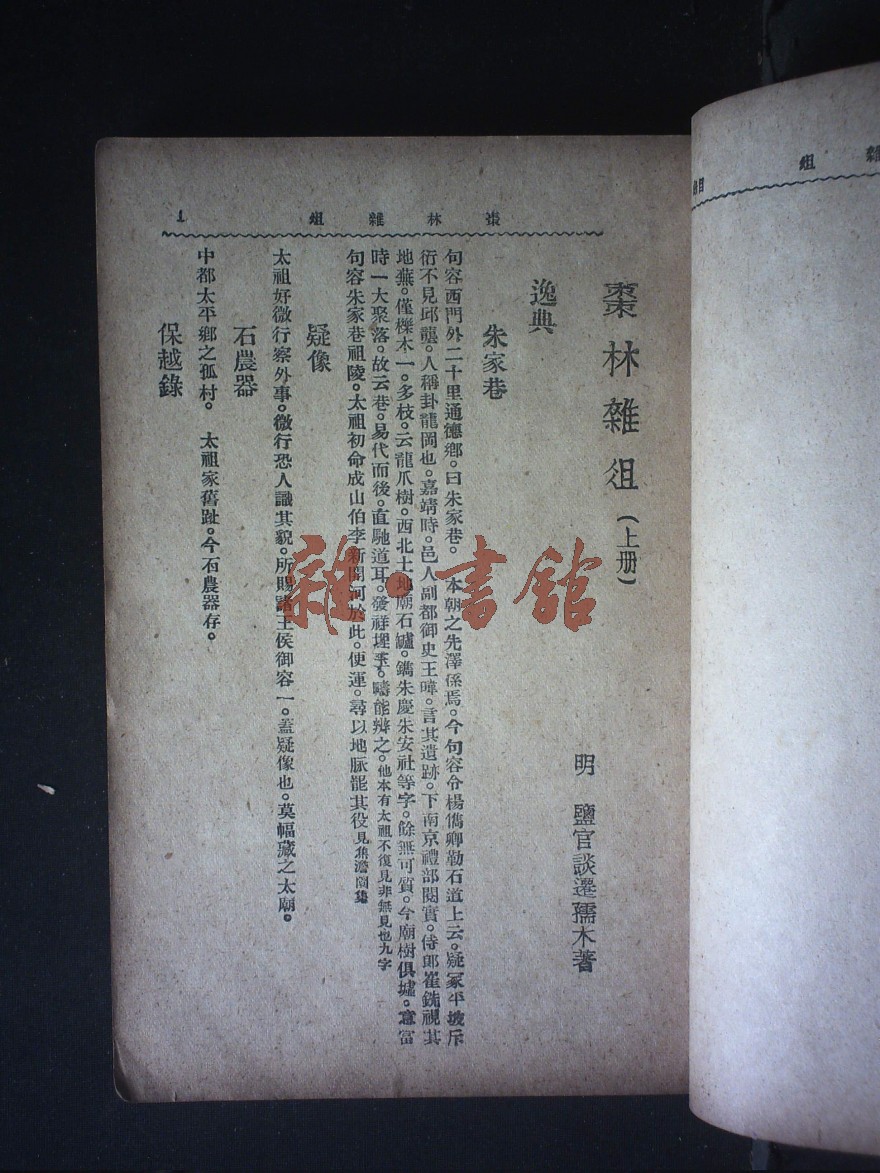 棗林雜俎
1
棗林雜俎（上册）
明　鹽官談遷孺木著
逸典
朱家巷
句容西門外二十里通德鄉。曰朱家巷。　本朝之先澤係焉。今句容令楊儁卿勒石道上云。疑冢平坡斥
衍不見邱壟。人稱卦龍岡也。嘉靖時。邑人副都御史王暐。言其遺跡。下南京禮部閱實。侍郎崔銑視其
地蕪。僅櫟木一。多枝。云龍爪樹。西北土地廟石罏。鐫朱慶朱安社等字。餘無可質。今廟樹俱墟。意富
時一大聚落。故云巷。易代而後。直馳道耳。發祥埋玉。疇能辨之。他本有太祖不復見非無見也九字
句容朱家巷祖陵。太祖初命成山伯李新開河於此。便運。尋以地脈罷其役見焦澹園集
疑像
太祖好微行察外事。微行恐人識其貌。所賜諸王侯御容一。蓋疑像也。莫幅藏之太廟。
石農器
中都太平鄉之孤村。　太祖家舊趾。今石農器存。
保越錄
雜·書館
組　雜
目